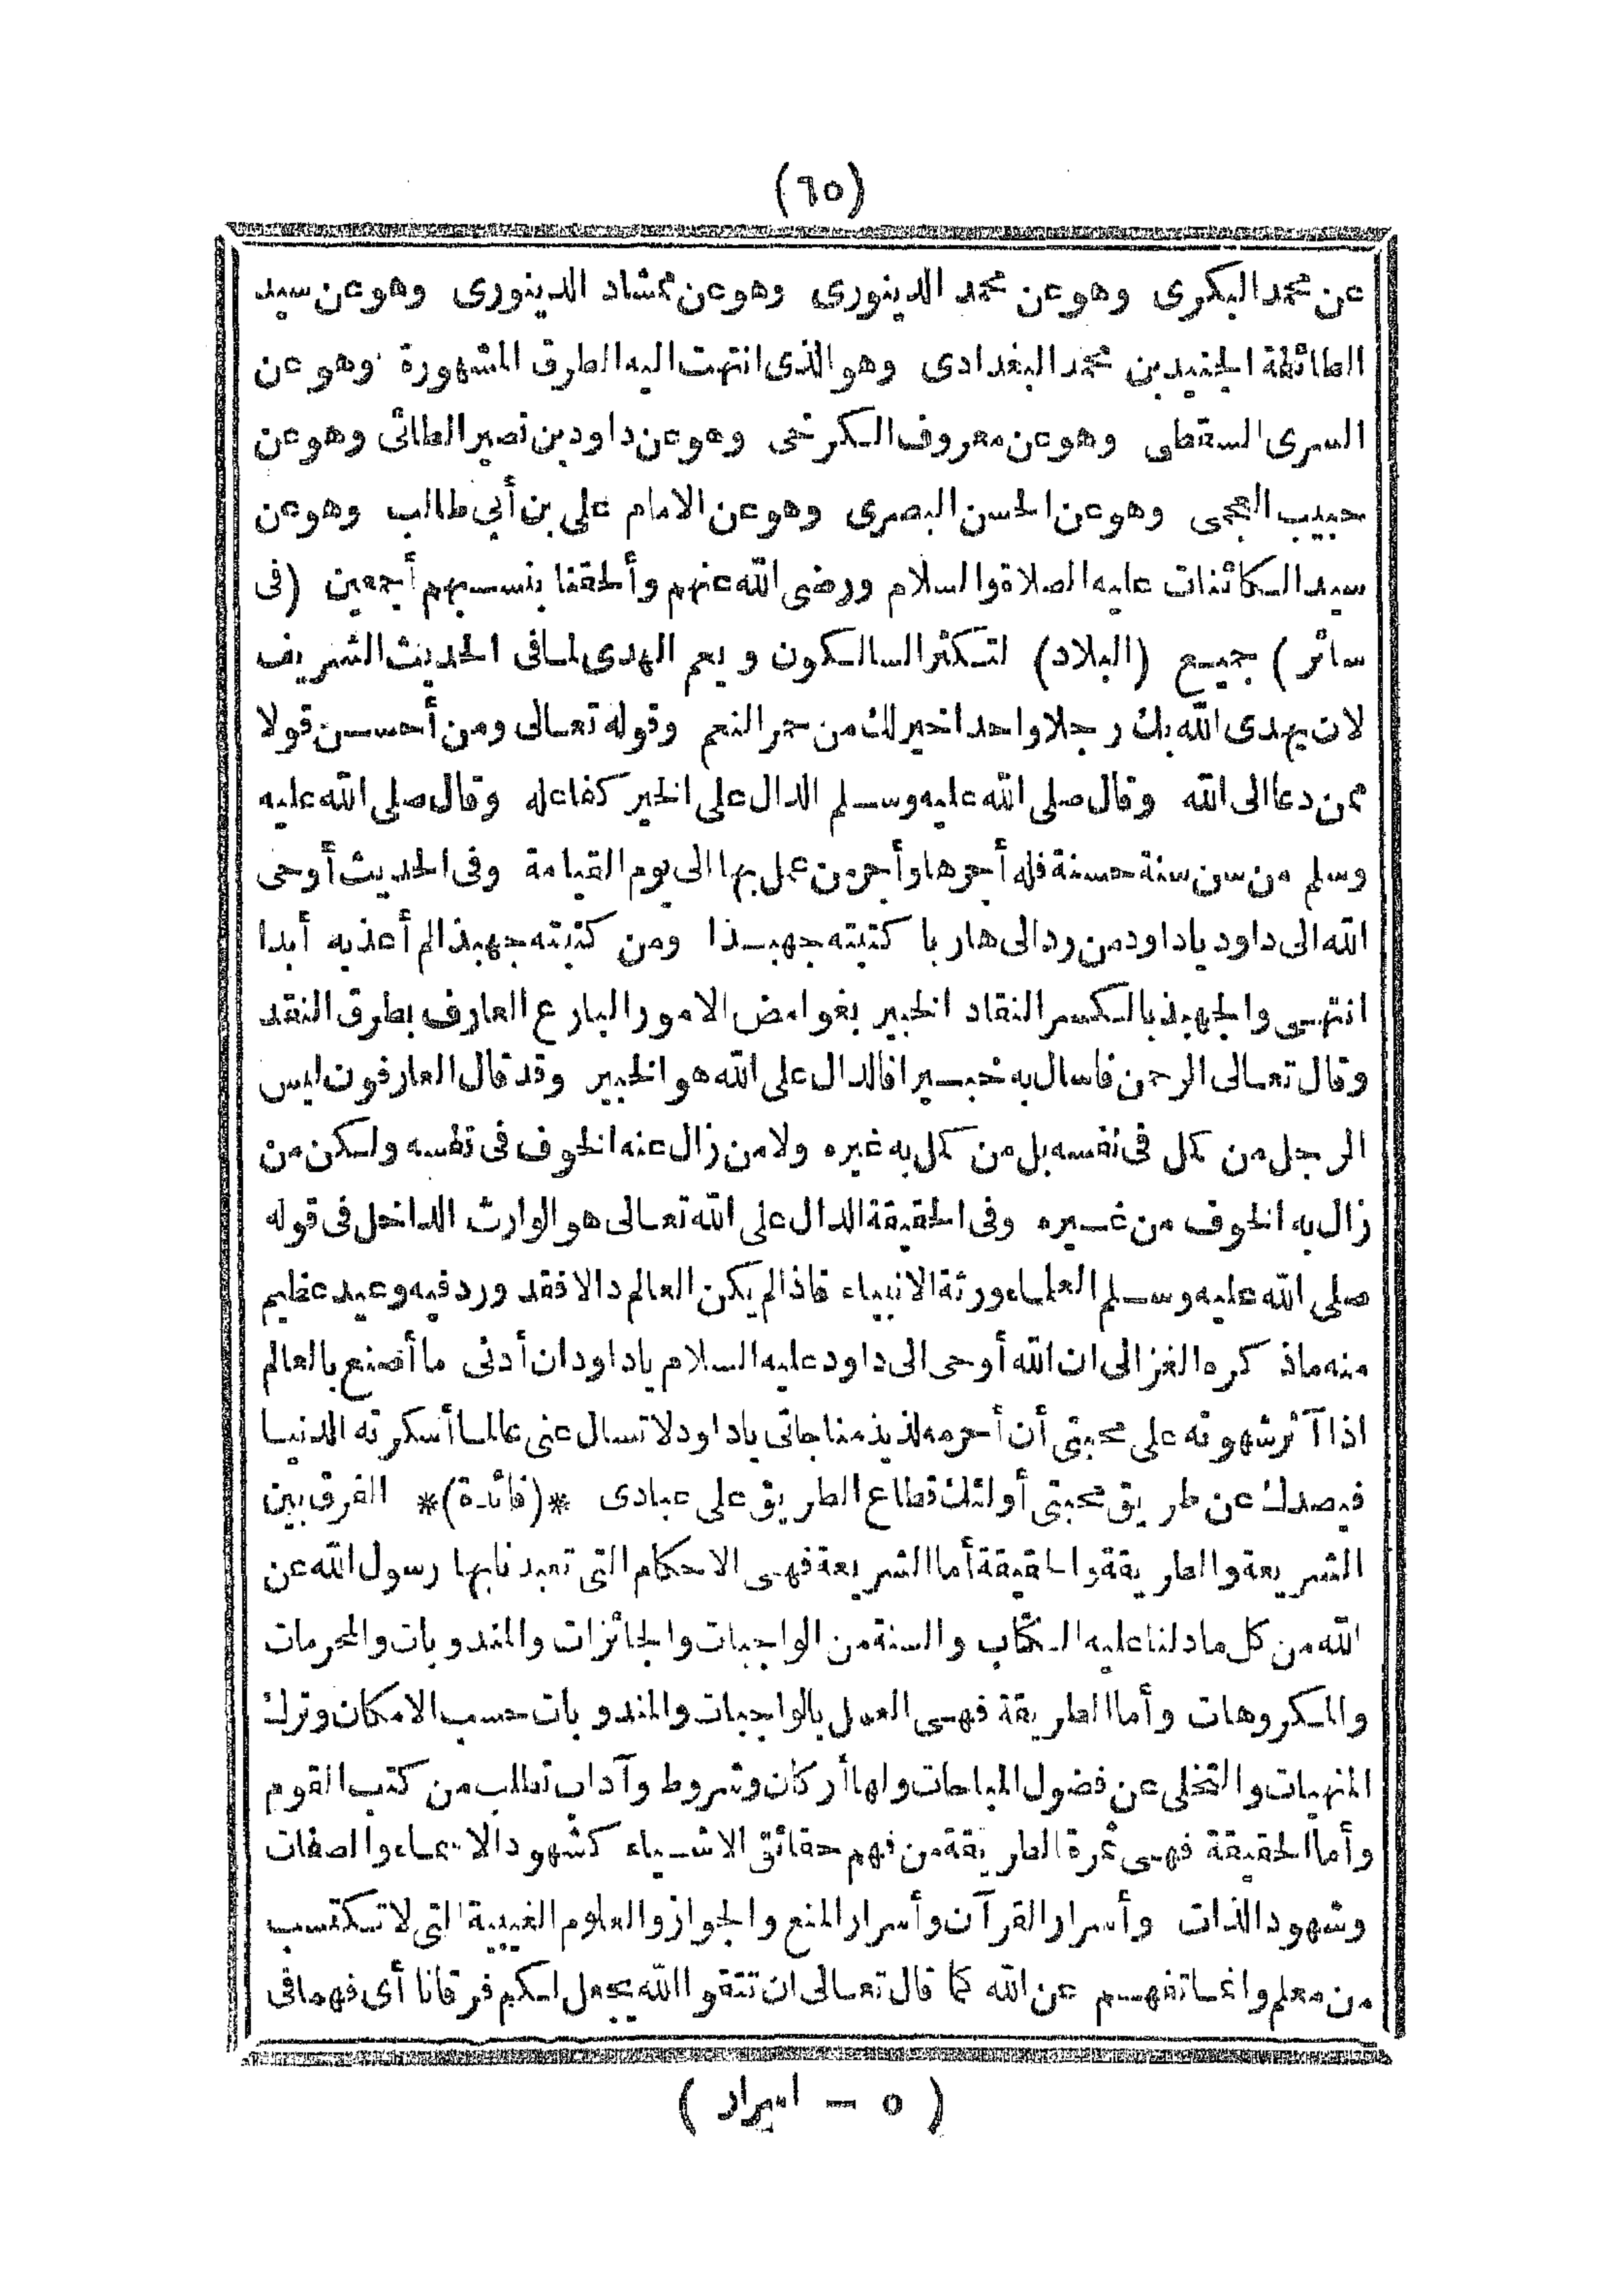 (٦٥)
عن محمد البكرى وهو عن محمد الدينورى وهو عن ممشاد الدينورى وهو عن سيد
الطائفة الجنيد بن محمد البغدادى وهو الذى انتهت اليه الطرق المشهورة وهو عن
السرى السقطى وهو عن معروف الكرخى وهو عن داود بن نصير الطائى وهو عن
حبيب العجمى وهو عن الحسن البصرى وهو عن الامام على بن أبي طالب وهو عن
سيد الكائنات عليه الصلاة والسلام ورضى الله عنهم وألحقنا بنسبهم أجمعين (فى
سائر) جميع (البلاد) لتكثر السالكون ويعم الهدى لما فى الحديث الشريف
لان يهدى الله بك رجلا واحدا خير لك من حمر النعم وقوله تعالى ومن أحسن قولا
ممن دعا الى الله وقال صلى الله عليه وسلم الدال على الخير كفاعله وقال صلى الله عليه
وسلم من سن سنة حسنة فله أجرها وأجر من عمل بها الى يوم القيامة وفى الحديث أوحى
الله الى داود ياداود من رد الى هاربا كتبته جهبذا ومن كتبته جهبذا لم أعذبه أبدا
انتهى والجهبذ بالكسر النقاد الخبير بغوامض الامور البارع العارف بطرق النقد
وقال تعالى الرحمن فاسال به خبيرا فالدال على الله هو الخبير وقد قال العارفون ليس
الرجل من كمل فى نفسه بل من كمل به غيره ولا من زال عنه الخوف فى نفسه ولكن من
زال به الخوف من غيره وفى الحقيقة الدال على الله تعالى هو الوارث الداخل فى قوله
صلى الله عليه وسلم العلماء ورثة الانبياء فاذا لم يكن العالم دالا فقد ورد فيه وعيد عظيم
منه ماذكره الغزالى ان الله أوحى الى داود عليه السلام ياداود ان أدنى ما أصنع بالعالم
اذا آثر شهوته على محبتى أن أحرمه لذيذ مناجاتى ياداود لا تسال عنى عالما أسكرته الدنيا
فيصدك عن طريق محبتى أولئك قطاع الطريق على عبادى *(فائدة)* الفرق بين
الشريعة والطريقة والحقيقة أما الشريعة فهى الاحكام التى تعبدنا بها رسول الله عن
الله من كل مادلنا عليه الكتاب والسنة من الواجبات والجائزات والمندوبات والمحرمات
والمكروهات وأما الطريقة فهى العمل بالواجبات والمندوبات حسب الامكان وترك
المنهيات والتخلى عن فضول المباحات ولها أركان وشروط وآداب تطلب من كتب القوم
وأما الحقيقة فهى ثمرة الطريقة من فهم حقائق الاشياء كشهود الاسماء والصفات
وشهود الذات وأسرار القرآن وأسرار المنع والجواز والعلوم الغيبية التى لا تكتسب
من معلم وانما تفهم عن الله كما قال تعالى ان تتقوا الله يجعل لكم فرقانا أى فهما فى
(٥ - اسرار)